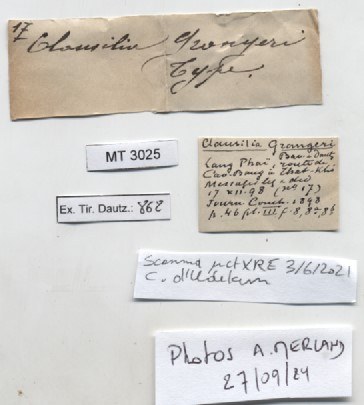 17
Clausilia Grangeri
Type.
MT 3025
Clausilia Grangeri
Bav. & Dautz.
Lang Phaï, route de
Cao-Bang à That-Khé
Messager leg. ded
17.XII.98 (No 17)
Journ. Conch. 1898
p. 46 pl. III f. 8, 8a, 8b
Ex. Tir. Dautz.: 862
Scanned µctXRE 3/6/2021
C. d'Udekem
Photos A. MERLAND
27/09/24